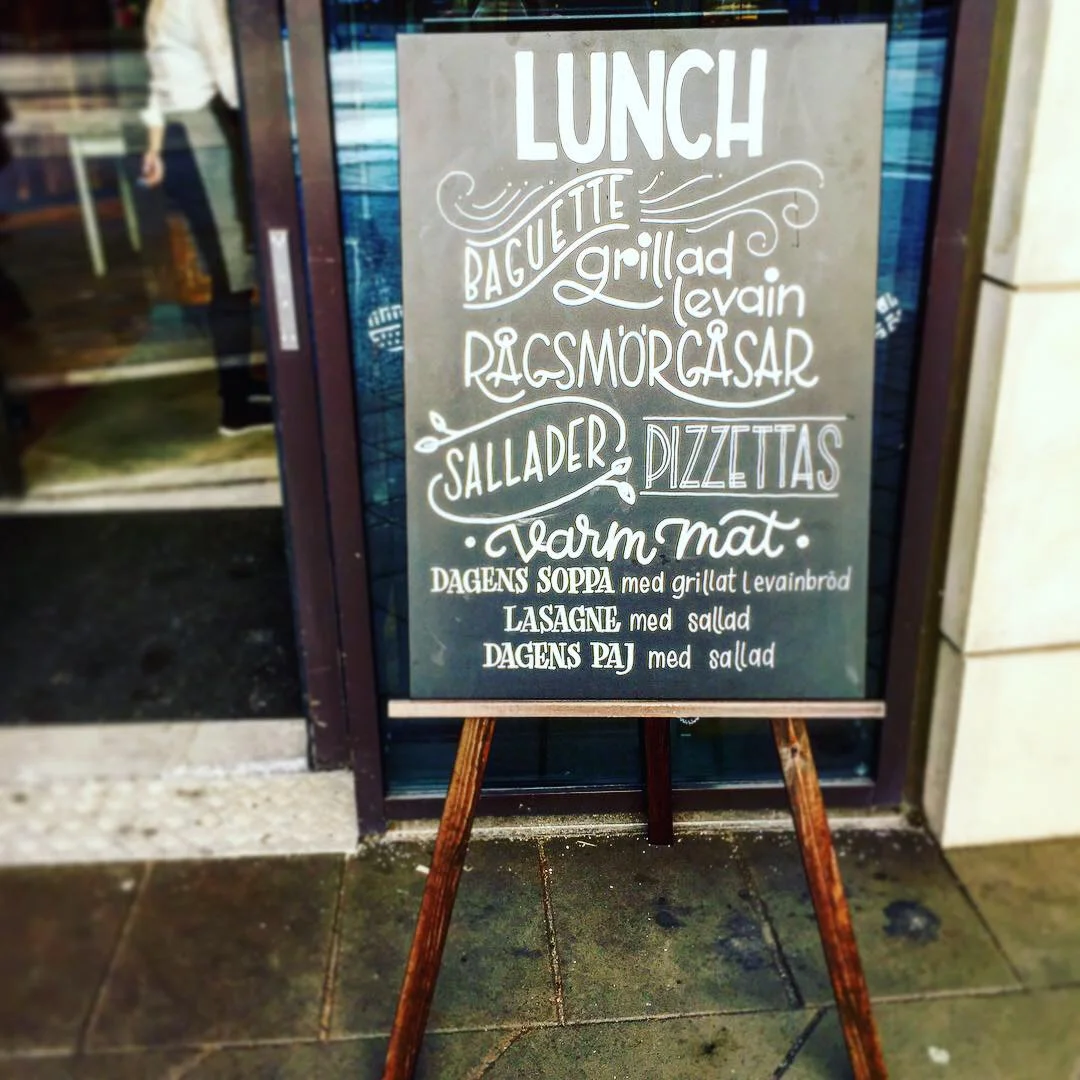 LUNCH
BAGUETTE
grillad
levain
RÅGSMÖRGÅSAR
SALLADER PIZZETTAS
• varm mat •
DAGENS SOPPA med grillat levainbröd
LASAGNE med sallad
DAGENS PAJ med sallad